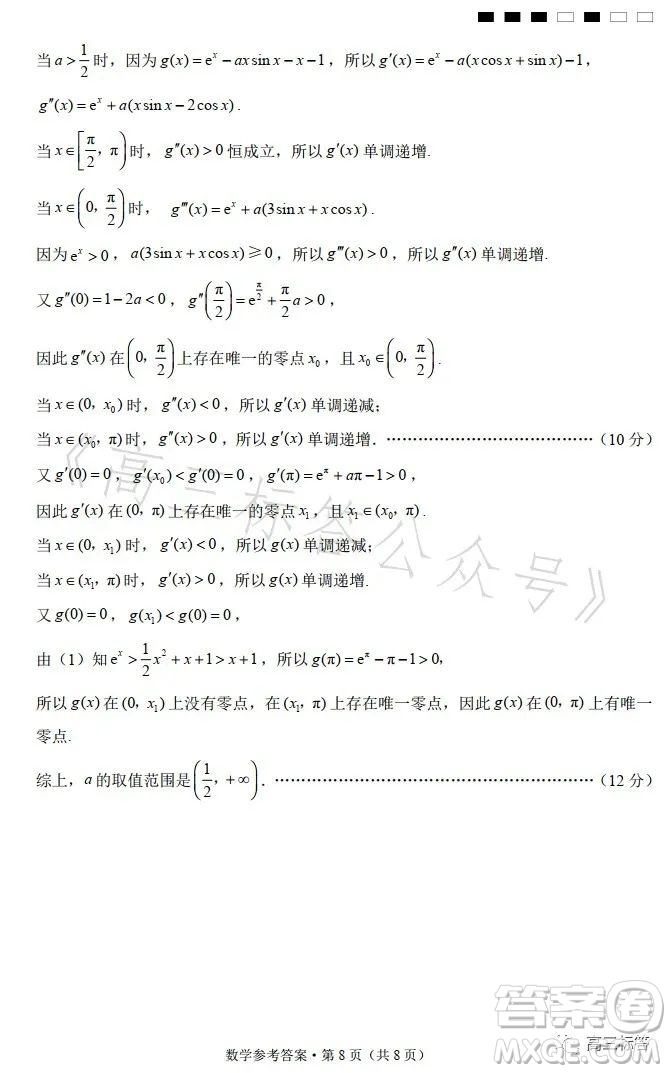 当 a > 1/2 时，因为 g(x) = eˣ − ax sin x − x − 1，所以 g′(x) = eˣ − a(x cos x + sin x) − 1，
g″(x) = eˣ + a(x sin x − 2cos x).
当 x ∈ [π/2，π) 时，g″(x) > 0 恒成立，所以 g′(x) 单调递增.
当 x ∈ (0，π/2) 时， g‴(x) = eˣ + a(3sin x + x cos x).
因为 eˣ > 0，a(3sin x + x cos x) ≥ 0，所以 g‴(x) > 0，所以 g″(x) 单调递增.
又 g″(0) = 1 − 2a < 0，g″(π/2) = e^(π/2) + (π/2)a > 0，
因此 g″(x) 在 (0，π/2) 上存在唯一的零点 x₀，且 x₀ ∈ (0，π/2).
当 x ∈ (0，x₀) 时，g″(x) < 0，所以 g′(x) 单调递减；
当 x ∈ (x₀，π) 时，g″(x) > 0，所以 g′(x) 单调递增.……………………………………（10 分）
又 g′(0) = 0，g′(x₀) < g′(0) = 0，g′(π) = e^π + aπ − 1 > 0，
因此 g′(x) 在 (0，π) 上存在唯一的零点 x₁，且 x₁ ∈ (x₀，π).
当 x ∈ (0，x₁) 时，g′(x) < 0，所以 g(x) 单调递减；
当 x ∈ (x₁，π) 时，g′(x) > 0，所以 g(x) 单调递增.
又 g(0) = 0，g(x₁) < g(0) = 0，
由（1）知 eˣ > 1/2 x² + x + 1 > x + 1，所以 g(π) = e^π − π − 1 > 0，
所以 g(x) 在 (0，x₁) 上没有零点，在 (x₁，π) 上存在唯一零点，因此 g(x) 在 (0，π) 上有唯一
零点.
综上，a 的取值范围是 (1/2，+∞).……………………………………………………（12 分）
《高三标答公众号》
数学参考答案·第 8 页（共 8 页）
高三标答
答案卷
MXQE.COM